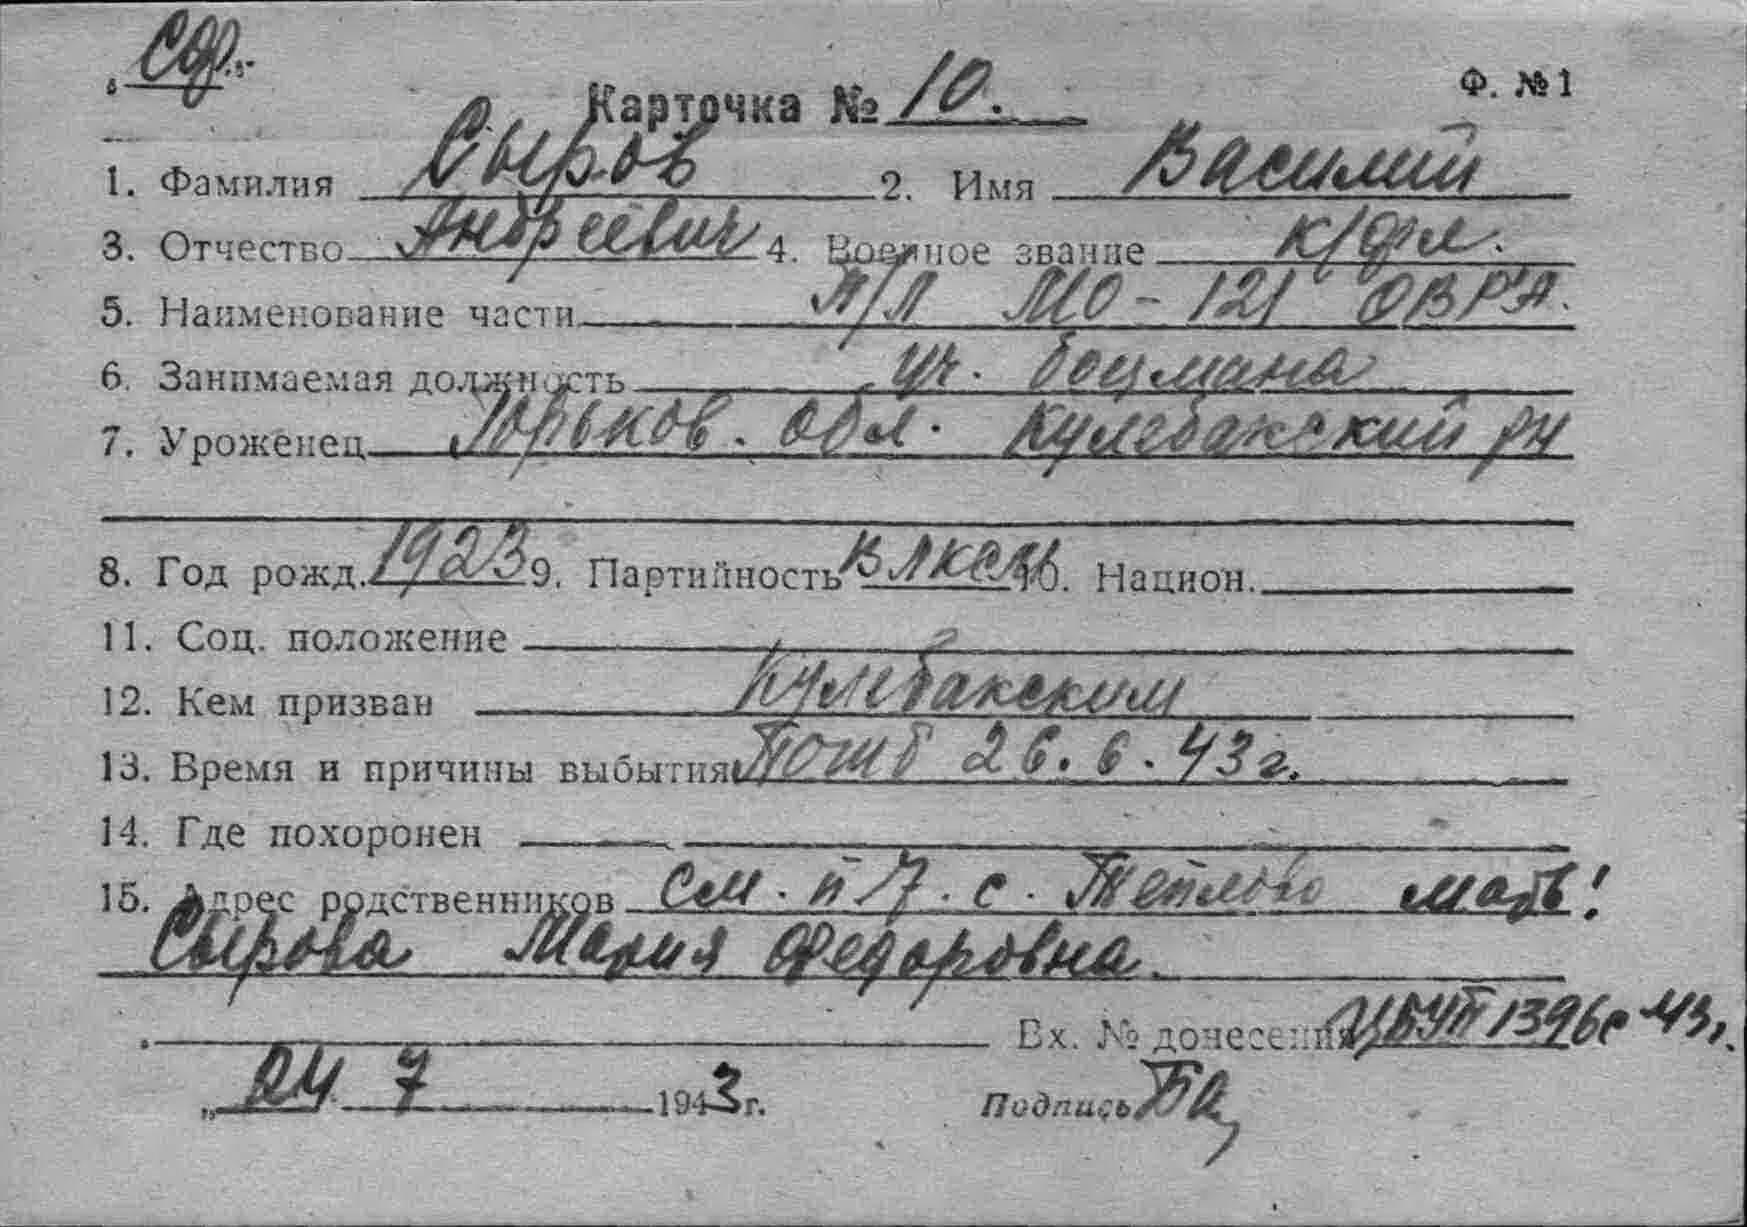 Сф.
Ф. № 1
Карточка № 10.
1. Фамилия Сыров 2. Имя Василий
3. Отчество Андреевич 4. Военное звание к/фл.
5. Наименование части П/Л МО-121 ОВР'А.
6. Занимаемая должность уч. боцмана
7. Уроженец Горьков. обл. Кулебакский рн
8. Год рожд. 1923 9. Партийность ВЛКСМ 10. Национ.
11. Соц. положение
12. Кем призван Кулебакским
13. Время и причины выбытия Погиб 26.6.43г.
14. Где похоронен
15. Адрес родственников см. п 7. с. Теплово мать!
Сырова Мария Федоровна.
Вх. № донесения ЦБУП 1396с 43г.
24. 7 1943 г. Подпись